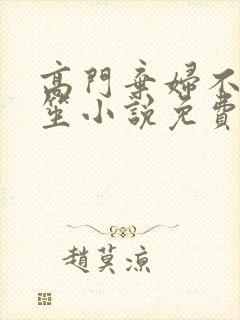 高門棄婦不
笙小說免費
趙莫涼